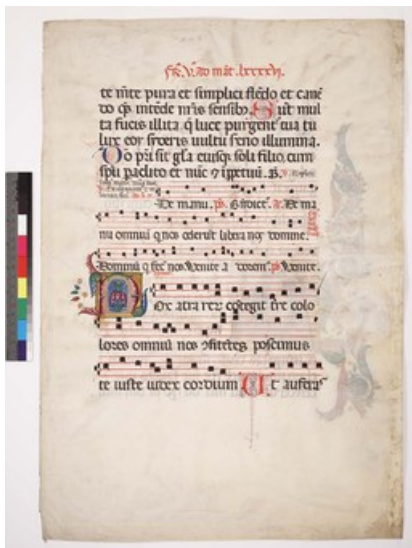 te mēte pura et simplici flēdo et canē
do q̄s intēde nr̄is sensibꝰ. Sūt mul
ta fucis illita q̄ luce purgent̄ tua tu
lux eoi sideris vultu sereno illumina.
Deo pr̄i sit gl̄a eiusqꝫ soli filio, cum
sp̄u paclito et nūc ⁊ īppetuū.
De manu. a. De ma
nu omniū q nos oderūt libera nos domine.
Dominū q fecit nos. Venite adorem. ps. Venite.
Nox atra rerū cōtegit tr̄e colo
lores omniū nos ꝯfitētes poscimus
te iuste iudex cordium Ut auferas